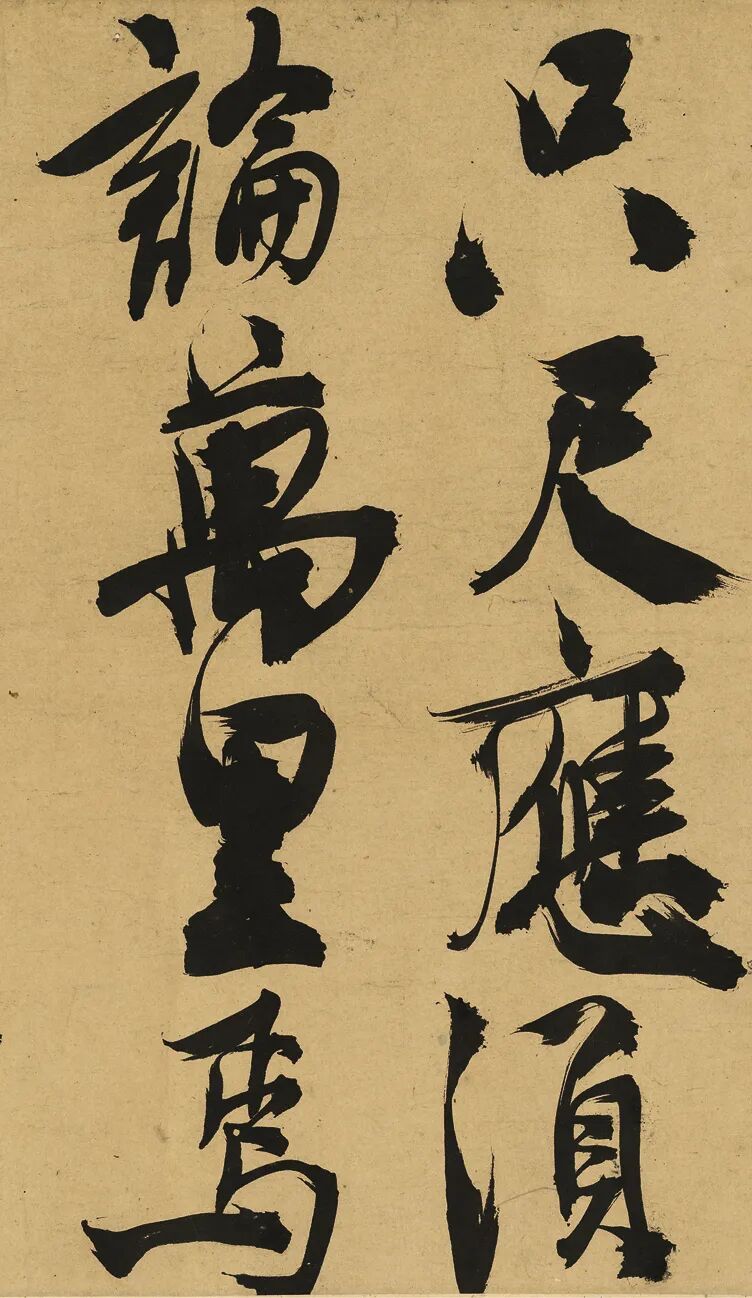 只尺應須
論萬里焉